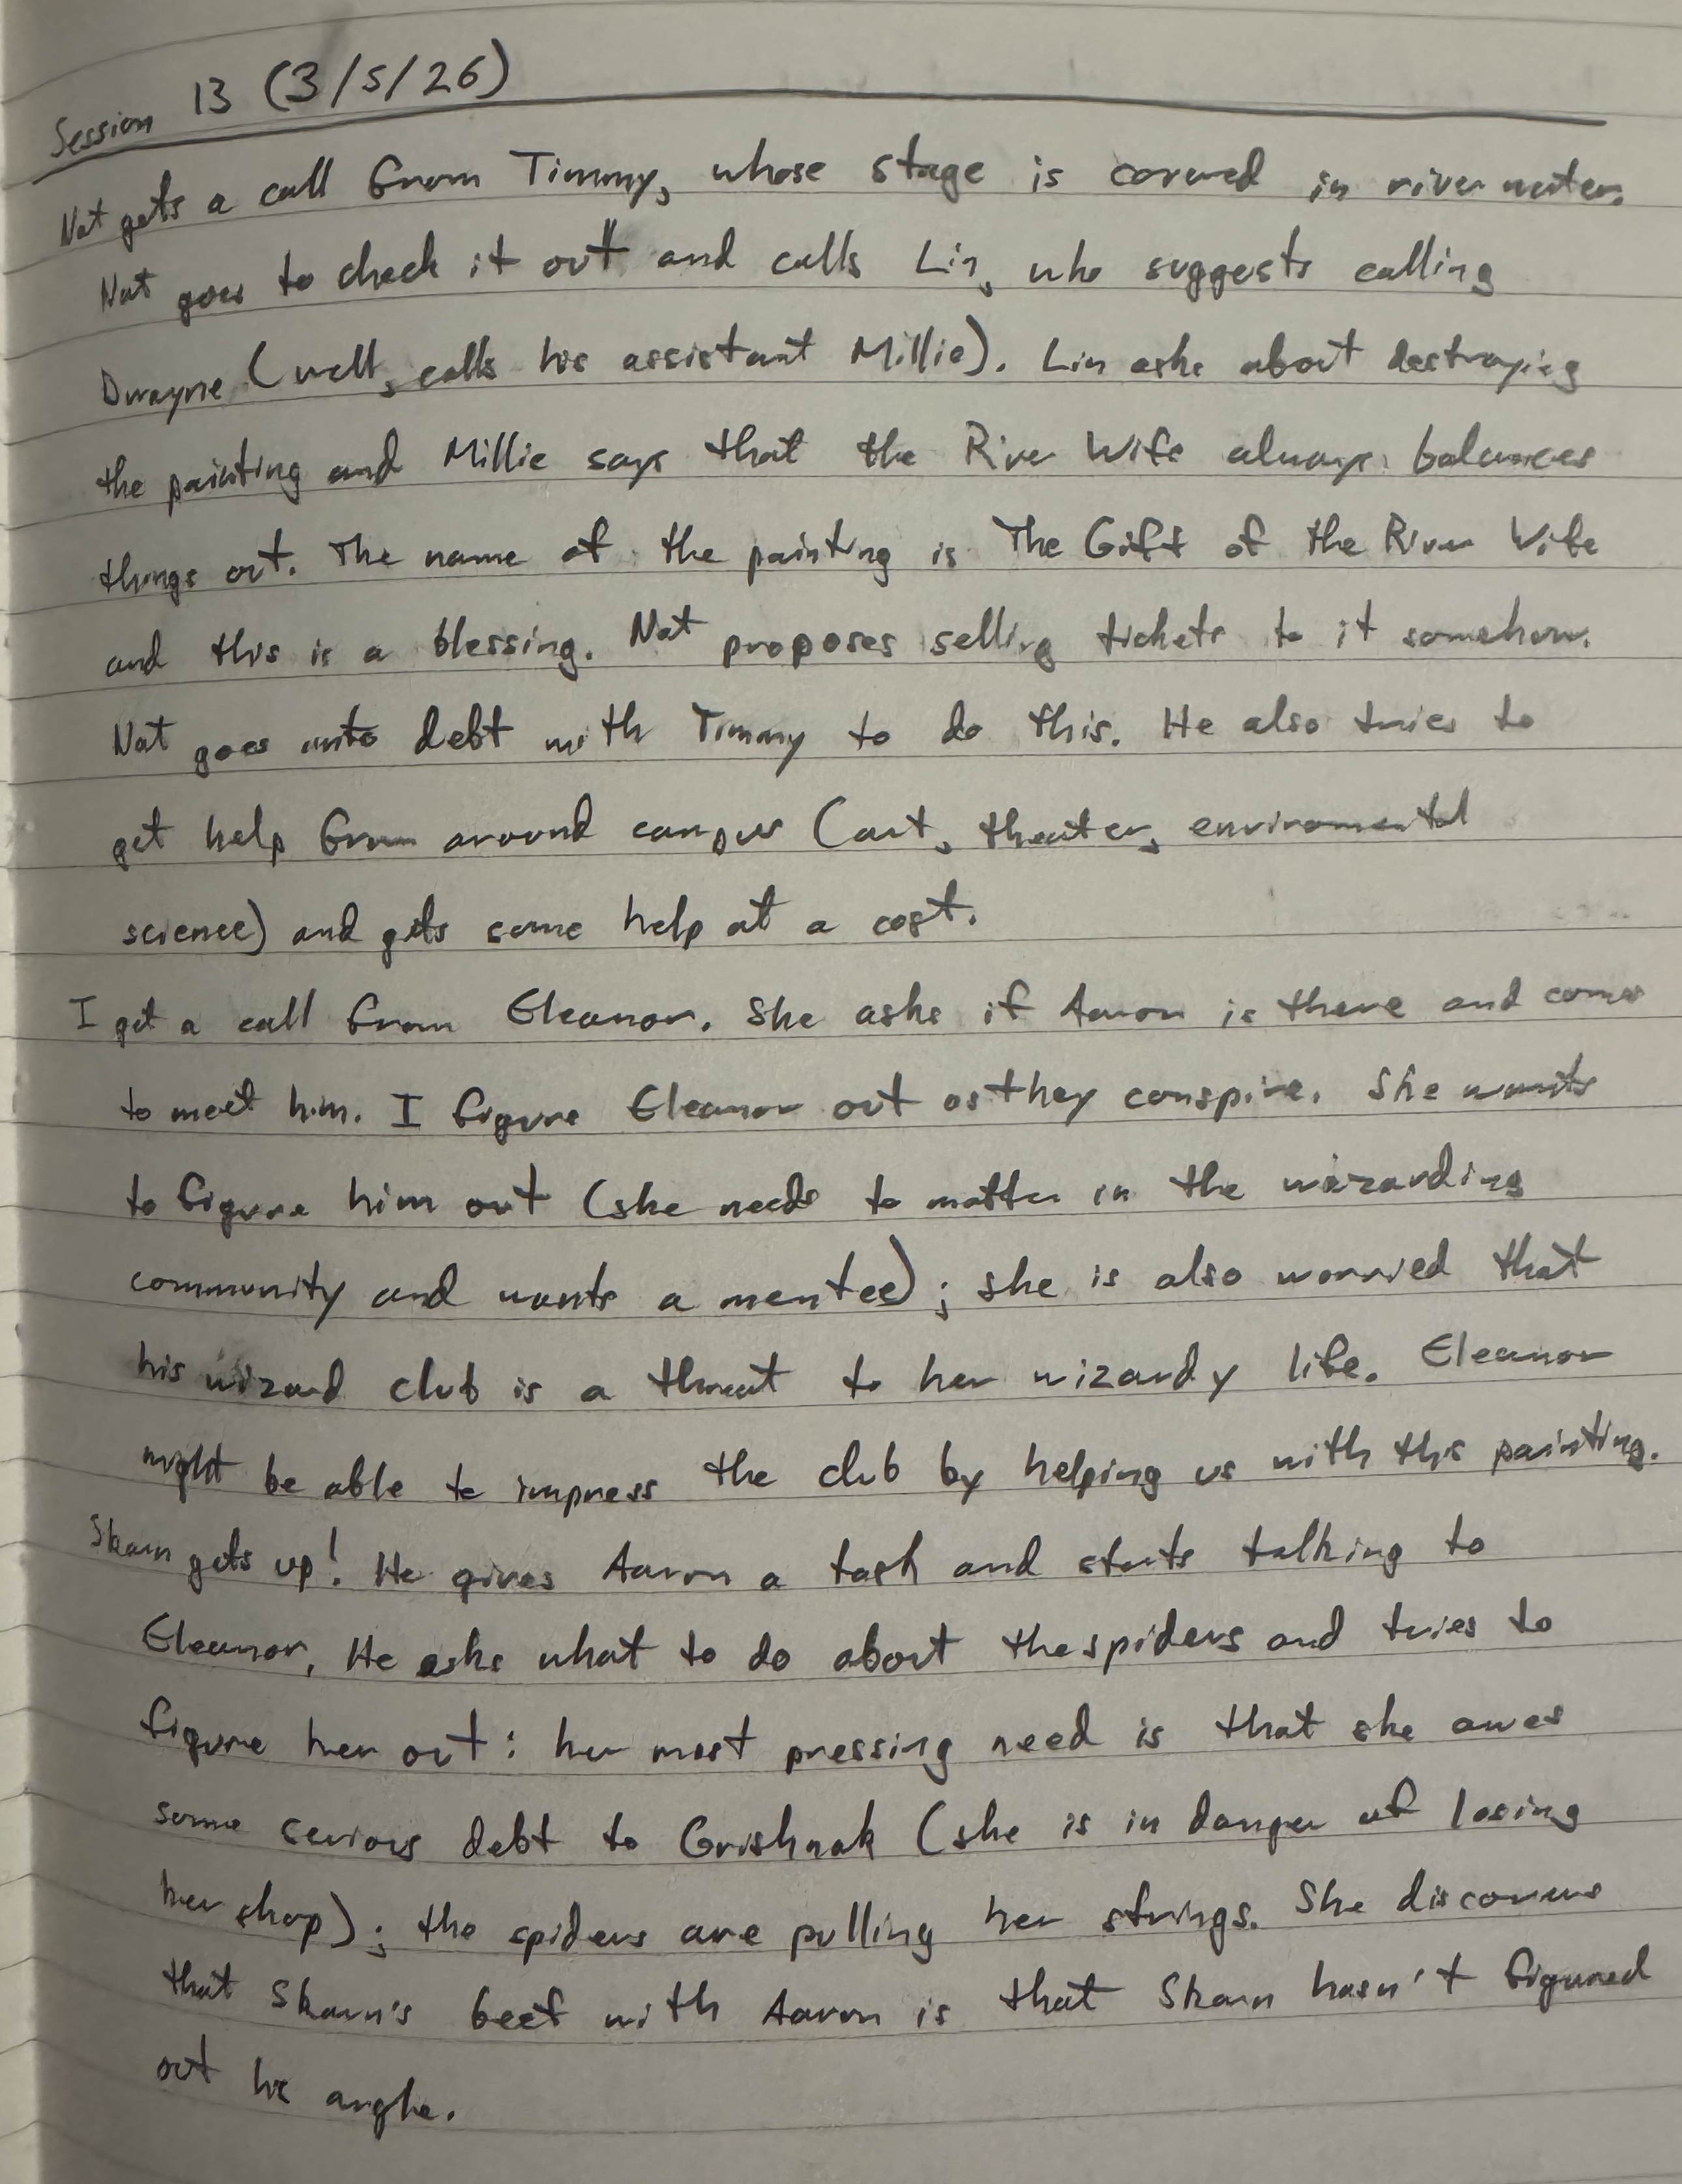 Session 13 (3/5/26)
Nat gets a call from Timmy, whose stage is covered in river water.
Nat goes to check it out and calls Lin, who suggests calling
Dwayne (well, calls his assistant Millie). Lin asks about destroying
the painting and Millie says that the River Wife always balances
things out. The name of the painting is The Gift of the River Wife
and this is a blessing. Nat proposes selling tickets to it somehow.
Nat goes into debt with Timmy to do this. He also tries to
get help from around campus (art, theater, enviromental
science) and gets some help at a cost.
I get a call from Eleanor. She asks if Aaron is there and comes
to meet him. I figure Eleanor out as they conspire. She wants
to figure him out (she needs to matter in the wizarding
community and wants a mentee); she is also worried that
his wizard club is a threat to her wizardy life. Eleanor
might be able to impress the club by helping us with this painting.
Skarn gets up! He gives Aaron a task and starts talking to
Eleanor. He asks what to do about the spiders and tries to
figure her out: her most pressing need is that she owes
some serious debt to Grishnak (she is in danger of losing
her shop); the spiders are pulling her strings. She discovers
that Skarn's beef with Aaron is that Skarn hasn't figured
out his angle.